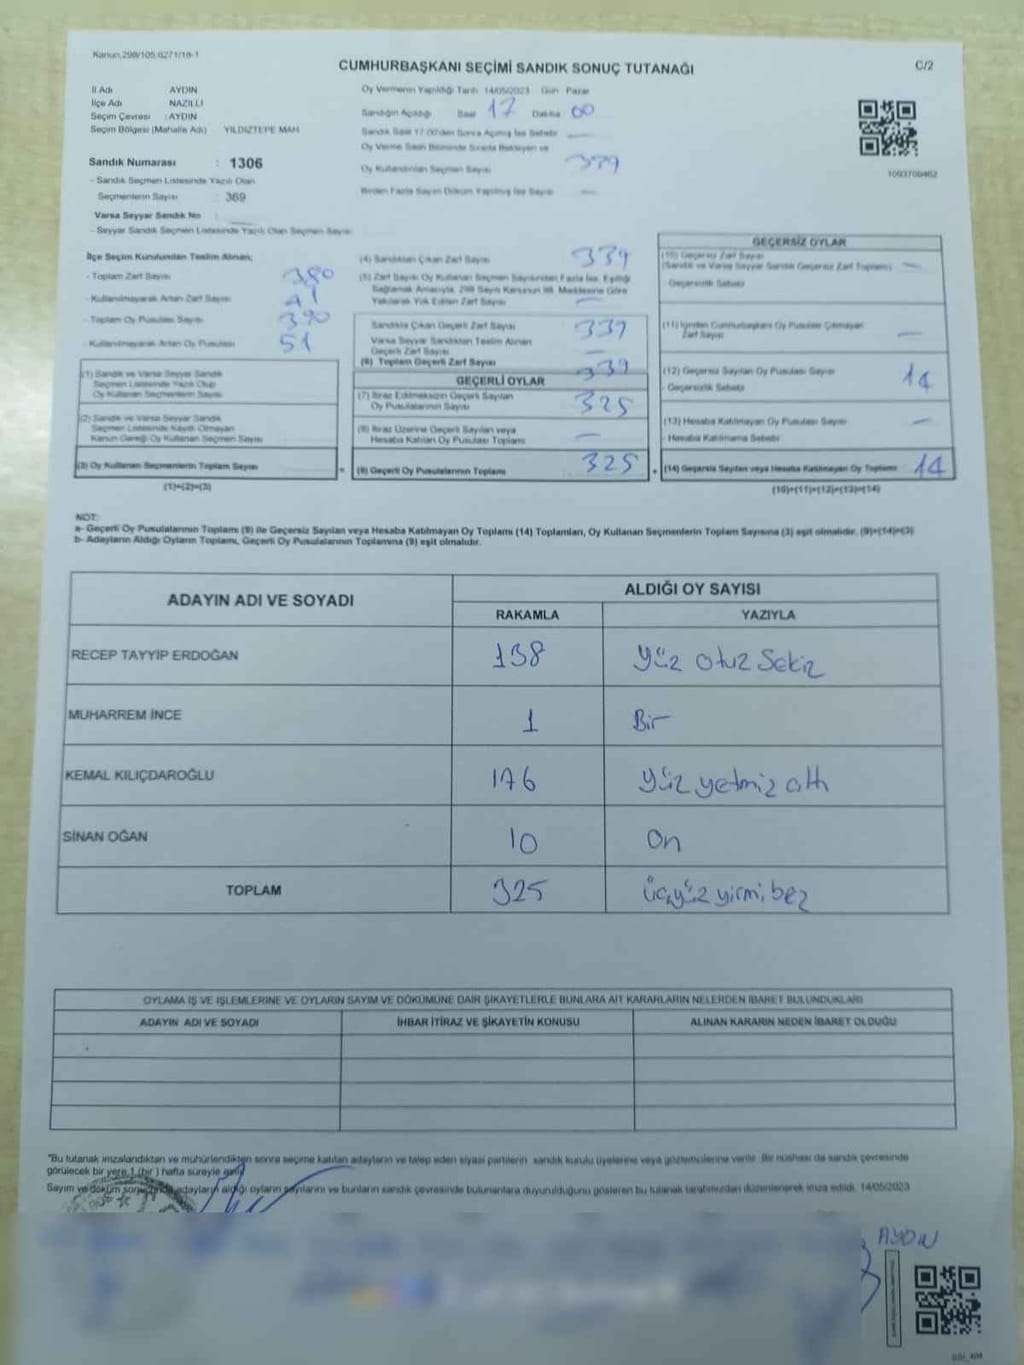 Kanun.298/105,6271/18-1
CUMHURBAŞKANI SEÇİMİ SANDIK SONUÇ TUTANAĞI
C/2
İl Adı AYDIN
İlçe Adı NAZİLLİ
Seçim Çevresi : AYDIN
Seçim Bölgesi (Mahalle Adı) YILDIZTEPE MAH.
Sandık Numarası : 1306
- Sandık Seçmen Listesinde Yazılı Olan
Seçmenlerin Sayısı : 369
Varsa Seyyar Sandık No :
- Seyyar Sandık Seçmen Listesinde Yazılı Olan Seçmen Sayısı
Oy Vermenin Yapıldığı Tarih 14/05/2023 Gün Pazar
Sandığın Açıldığı Saat 17 Dakika 00
Sandık Saat 17.00'den Sonra Açılmış İse Sebebi —
Oy Verme Saati Bitiminde Sırada Bekleyen ve
Oy Kullandırılan Seçmen Sayısı 339
Birden Fazla Sayım Döküm Yapılmış İse Sayısı —
1093709462
İlçe Seçim Kurulundan Teslim Alınan;
- Toplam Zarf Sayısı 380
- Kullanılmayarak Artan Zarf Sayısı 41
- Toplam Oy Pusulası Sayısı 390
- Kullanılmayarak Artan Oy Pusulası 51
(1) Sandık ve Varsa Seyyar Sandık
Seçmen Listesinde Yazılı Olup
Oy Kullanan Seçmenlerin Sayısı
(2) Sandık ve Varsa Seyyar Sandık
Seçmen Listesinde Kayıtlı Olmayan
Kanun Gereği Oy Kullanan Seçmen Sayısı
(3) Oy Kullanan Seçmenlerin Toplam Sayısı
(1)+(2)=(3)
(4) Sandıktan Çıkan Zarf Sayısı 339
(5) Zarf Sayısı Oy Kullanan Seçmen Sayısından Fazla İse, Eşitliği
Sağlamak Amacıyla, 298 Sayılı Kanunun 98. Maddesine Göre
Yakılarak Yok Edilen Zarf Sayısı —
Sandıkta Çıkan Geçerli Zarf Sayısı 339
Varsa Seyyar Sandıktan Teslim Alınan
Geçerli Zarf Sayısı —
(6) Toplam Geçerli Zarf Sayısı 339
GEÇERLİ OYLAR
(7) İtiraz Edilmeksizin Geçerli Sayılan
Oy Pusulalarının Sayısı 325
(8) İtiraz Üzerine Geçerli Sayılan veya
Hesaba Katılan Oy Pusulası Toplamı —
= (9) Geçerli Oy Pusulalarının Toplamı 325
GEÇERSİZ OYLAR
(10) Geçersiz Zarf Sayısı
(Sandık ve Varsa Seyyar Sandık Geçersiz Zarf Toplamı) —
- Geçersizlik Sebebi
(11) İçinden Cumhurbaşkanı Oy Pusulası Çıkmayan
Zarf Sayısı —
(12) Geçersiz Sayılan Oy Pusulası Sayısı 14
- Geçersizlik Sebebi
(13) Hesaba Katılmayan Oy Pusulası Sayısı —
- Hesaba Katılmama Sebebi
+ (14) Geçersiz Sayılan veya Hesaba Katılmayan Oy Toplamı 14
(10)+(11)+(12)+(13)=(14)
NOT:
a- Geçerli Oy Pusulalarının Toplamı (9) ile Geçersiz Sayılan veya Hesaba Katılmayan Oy Toplamı (14) Toplamları, Oy Kullanan Seçmenlerin Toplam Sayısına (3) eşit olmalıdır. (9)+(14)=(3)
b- Adayların Aldığı Oyların Toplamı, Geçerli Oy Pusulalarının Toplamına (9) eşit olmalıdır.
ADAYIN ADI VE SOYADI
ALDIĞI OY SAYISI
RAKAMLA YAZIYLA
RECEP TAYYİP ERDOĞAN 138 Yüz otuz Sekiz
MUHARREM İNCE 1 Bir
KEMAL KILIÇDAROĞLU 176 Yüz yetmiz altı
SİNAN OĞAN 10 On
TOPLAM 325 üçyüz yirmi bez
OYLAMA İŞ VE İŞLEMLERİNE VE OYLARIN SAYIM VE DÖKÜMÜNE DAİR ŞİKAYETLERLE BUNLARA AİT KARARLARIN NELERDEN İBARET BULUNDUKLARI
ADAYIN ADI VE SOYADI İHBAR İTİRAZ VE ŞİKAYETİN KONUSU ALINAN KARARIN NEDEN İBARET OLDUĞU
*Bu tutanak imzalandıktan ve mühürlendikten sonra seçime katılan adayların ve talep eden siyasi partilerin sandık kurulu üyelerine veya gözlemcilerine verilir. Bir nüshası da sandık çevresinde
görülecek bir yere 1 (bir) hafta süreyle asılır.
Sayım ve döküm sonucunda adayların aldığı oyların sayılarını ve bunların sandık çevresinde bulunanlara duyurulduğunu gösteren bu tutanak tarafımızdan düzenlenerek imza edildi. 14/05/2023
AYDIN